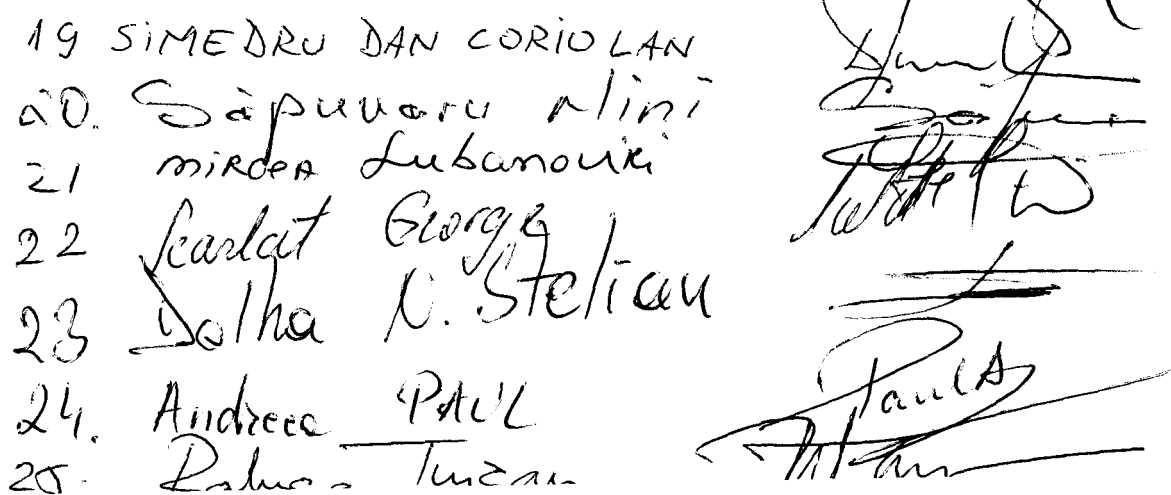 19 SIMEDRU DAN CORIOLAN
20. Săpunaru Nini
21 MIRCEA Lubanovici
22 Scarlat George
23 Dolha N. Stelian
24. Andreea PAUL PaulA
25. Turcan